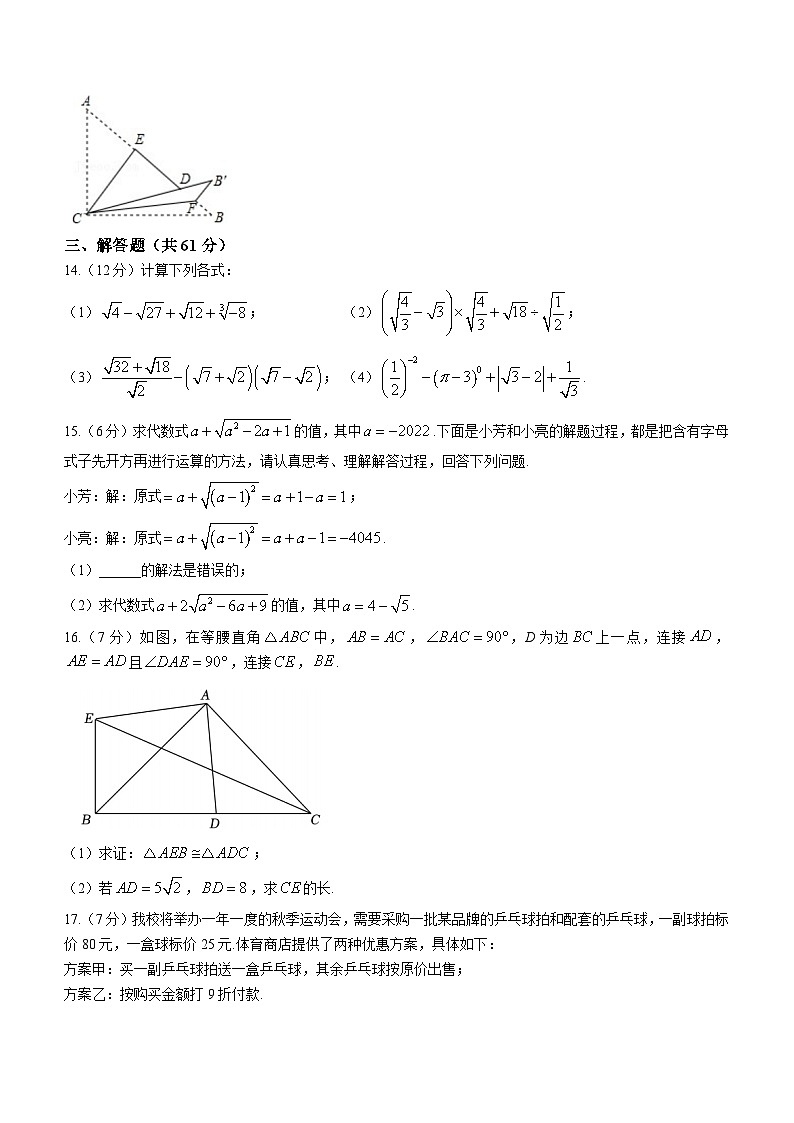 A
E
D
B′
C
F
B
三、解答题（共 61 分）
14.（12 分）计算下列各式：
（1）√4 − √27 + √12 + ∛−8；（2）(√(4/3) − √3) × √(4/3) + √18 ÷ √(1/2)；
（3）(√32 + √18)/√2 − (√7 + √2)(√7 − √2)；（4）(1/2)⁻² − (π − 3)⁰ + |√3 − 2| + 1/√3.
15.（6 分）求代数式 a + √(a² − 2a + 1) 的值，其中 a = −2022 .下面是小芳和小亮的解题过程，都是把含有字母
式子先开方再进行运算的方法，请认真思考、理解解答过程，回答下列问题.
小芳：解：原式 = a + √((a − 1)²) = a + 1 − a = 1；
小亮：解：原式 = a + √((a − 1)²) = a + a − 1 = −4045.
（1）______的解法是错误的；
（2）求代数式 a + 2√(a² − 6a + 9) 的值，其中 a = 4 − √5 .
16.（7 分）如图，在等腰直角 △ABC 中，AB = AC，∠BAC = 90°，D 为边 BC 上一点，连接 AD，
AE = AD 且 ∠DAE = 90°，连接 CE，BE .
A
E
B
D
C
（1）求证：△AEB ≅ △ADC；
（2）若 AD = 5√2，BD = 8，求 CE 的长.
17.（7 分）我校将举办一年一度的秋季运动会，需要采购一批某品牌的乒乓球拍和配套的乒乓球，一副球拍标
价 80 元，一盒球标价 25 元.体育商店提供了两种优惠方案，具体如下：
方案甲：买一副乒乓球拍送一盒乒乓球，其余乒乓球按原价出售；
方案乙：按购买金额打 9 折付款.